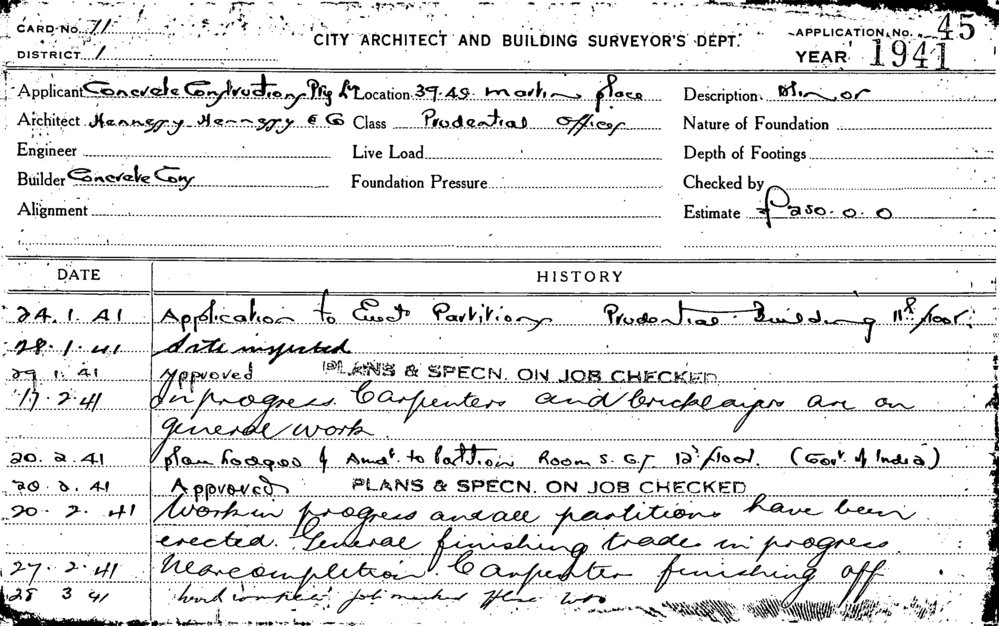 CARD No. 71
DISTRICT 1
CITY ARCHITECT AND BUILDING SURVEYOR'S DEPT.
APPLICATION No. 45
YEAR 1941
Applicant Concrete Constructions Pty Lt Location 39.49 Martin place Description Minor
Architect Hennessy Hennessy & Co Class Prudential Offices Nature of Foundation
Engineer Live Load Depth of Footings
Builder Concrete Cons Foundation Pressure Checked by
Alignment Estimate £250.0.0
DATE HISTORY
24.1.41 Application to Erect Partitions Prudential Building 11th floor.
28.1.41 Site inspected
29 1. 41 Approved PLANS & SPECN. ON JOB CHECKED
17.2.41 In progress. Carpenters and bricklayers are on
general work.
20.2.41 plan lodged of Amdt. to Partition Rooms. 12th floor. (Govt. of India)
20.2.41 Approved PLANS & SPECN. ON JOB CHECKED
20.2.41 Work in progress and all partitions have been
erected. General finishing trades in progress
27.2.41 Near completion. Carpenters finishing off
28 3 41 Work complete job marked